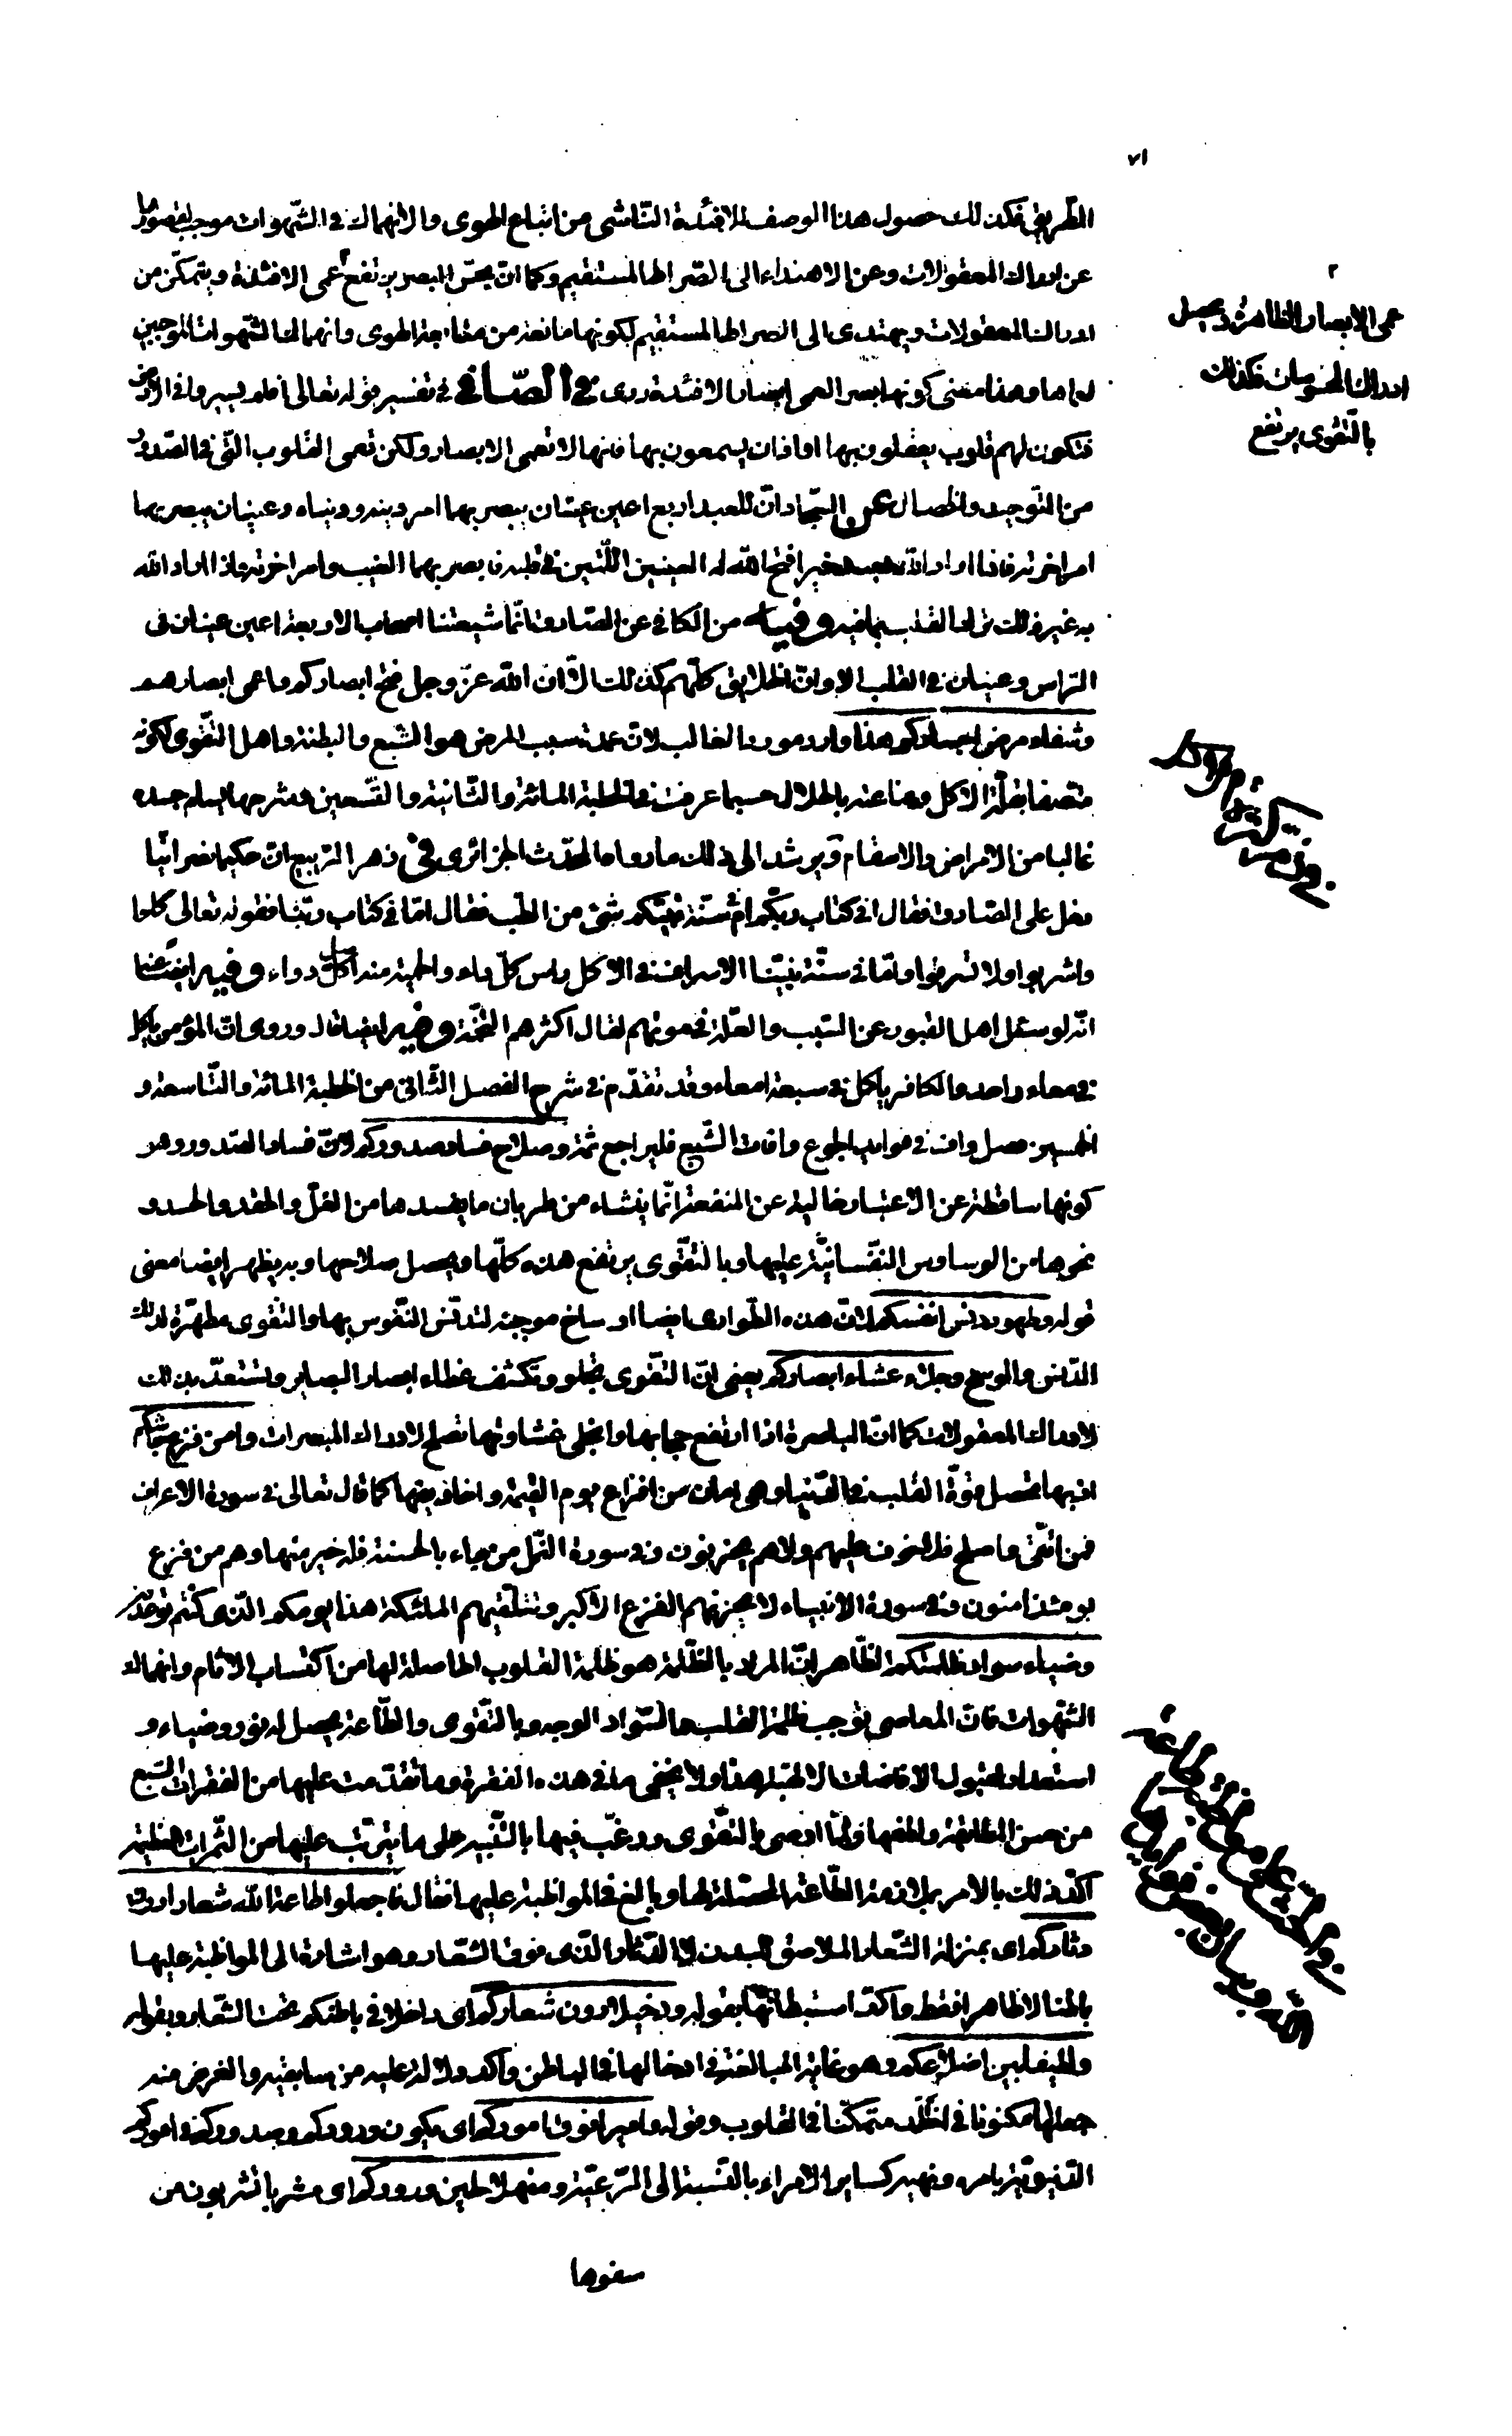 ٧١
الطريق فكذلك حصول هذا الوصف للافئدة الناشى من اتباع الهوى والانهماك فى الشهوات موجب لقصورها
عن ادراك المعقولات وعن الاهتداء الى الصراط المستقيم وكما ان بحس البصر يرتفع عمى الافئدة ويتمكن من
ادراك المعقولات ويهتدى الى الصراط المستقيم لكونها مانعة من متابعة الهوى وانهماك الشهوات الموجبين
لعماها وهذا معنى كونها بصر العمى ابصار الافئدة روى فى الصافى فى تفسير قوله تعالى افلم يسيروا فى الارض
فتكون لهم قلوب يعقلون بها او اذان يسمعون بها فانها لا تعمى الابصار ولكن تعمى القلوب التى فى الصدور
من التوحيد والخصال عن السجاد ان للعبد اربع اعين عينان يبصر بهما امر دينه ودنياه وعينان يبصر بهما
امر اخرته فاذا اراد الله بعبد خيرا فتح الله له العينين اللتين فى قلبه فابصر بهما الغيب وامر اخرته واذا اراد الله
به غير ذلك ترك القلب بما فيه وفيه من الكافى عن الصادق انما شيعتنا اصحاب الاربعة اعين عينان فى
الراس وعينان فى القلب الا وان الخلايق كلهم كذلك الا ان الله عز وجل فتح ابصاركم واعمى ابصارهم
وشفاء مرض اجسادكم هذا وارد مورد الغالب لان عمدة سبب المرض هو الشبع والبطنة واهل التقوى لكونه
متصفا بقلة الاكل وقناعته بالحلال حسبما عرفت فى الخطبة المائة والثانية والتسعين وشرحها يسلم جسده
غالبا من الامراض والاسقام ويرشد الى ذلك ما رواه المحدث الجزائرى فى زهر الربيع ان حكيما نصرانيا
دخل على الصادق فقال افى كتاب ربكم ام فى سنة نبيكم شىء من الطب فقال اما فى كتاب ربنا فقوله تعالى كلوا
واشربوا ولا تسرفوا واما فى سنة نبينا الاسراف فى الاكل راس كل داء والحمية منه اصل كل دواء وفيه ايضا عنه
انه لو سئل اهل القبور عن السبب والعلة فى موتهم لقال اكثرهم التخمة وفيه ايضا قال وروى ان المؤمن ياكل
فى معاء واحد والكافر ياكل فى سبعة امعاء وقد تقدم فى شرح الفصل الثانى من الخطبة المائة والتاسعة و
الخمسين فصل واف فى فوايد الجوع وافات الشبع فليراجع ثمة وصلاح فساد صدوركم لان فساد الصدور وهو
كونها ساقطة عن الاعتبار خالية عن المنفعة انما ينشاء من طريان ما يفسدها من الغل والحقد والحسد و
نحوها من الوساوس النفسانية عليها وبالتقوى يرتفع هذه كلها ويحصل صلاحها وبه يظهر ايضا معنى
قوله وطهور دنس انفسكم لان هذه الطوارى ايضا اوساخ موجبة لتدنس النفوس بها والتقوى مطهرة لذلك
الدنس والوسخ وجلاء عشاء ابصاركم يعنى ان التقوى تجلو وتكشف غطاء ابصار البصاير وتستعد بذلك
لادراك المعقولات كما ان الباصرة اذا ارتفع حجابها وانجلى غشاوتها تصلح لادراك المبصرات وامن فزع جاشكم
اذ بها تحصل قوة القلب فى الدنيا وهى امان من افزاع يوم القيمة واخاويفها كما قال تعالى فى سورة الاعراف
فمن اتقى واصلح فلا خوف عليهم ولا هم يحزنون وفى سورة النمل من جاء بالحسنة فله خير منها وهم من فزع
يومئذ امنون وفى سورة الانبياء لا يحزنهم الفزع الاكبر وتتلقيهم الملئكة هذا يومكم الذى كنتم توعدون
وضياء سواد ظلمتكم الظاهر ان المراد بالظلمة هو ظلمة القلوب الحاصلة لها من اكتساب الاثام وانهماك
الشهوات فان المعاصى توجب ظلمة القلب والسواد الوجه وبالتقوى والطاعة يحصل له نور وضياء و
استعداد لقبول الافاضات الالهية هذا ولا يخفى ما فى هذه الفقرة وما تقدمت عليها من الفقرات السبع
من حسن المطابقة والطفها ولما اوصى بالتقوى ورغب فيها بالتنبيه على ما يترتب عليها من الثمرات العظيمة
اكد ذلك بالامر بملازمة الطاعة المحصلة لها وبالغ فى المواظبة عليها فقال فاجعلوا طاعة الله شعارا دون
دثاركم اى بمنزلة الشعار الملاصق للبدن لا الدثار الذى فوق الشعار وهو اشارة الى المواظبة عليها
باطنا لا ظاهرا فقط واكد استبطانها بقوله ودخيلا دون شعاركم اى داخلا فى باطنكم تحت الشعار وبقوله
ولطيفا بين اضلاعكم وهو غاية المبالغة فى ادخالها فى الباطن واكد دلالة عليه من سابقيه والغرض منه
جعالها مكنونا فى الخلد متمكنا فى القلوب وقوله واميرا فوق اموركم اى يكون ورودكم وصدوركم فى اموركم
الدنيوية بامره ونهيه كساير الامراء بالنسبة الى الرعية ومنهلا لحين ورودكم اى مشربا تشربون من
صفوها
عمى الابصار الظاهرة ويحصل
ادراك المحسوسات فكذلك
بالتقوى يرتفع